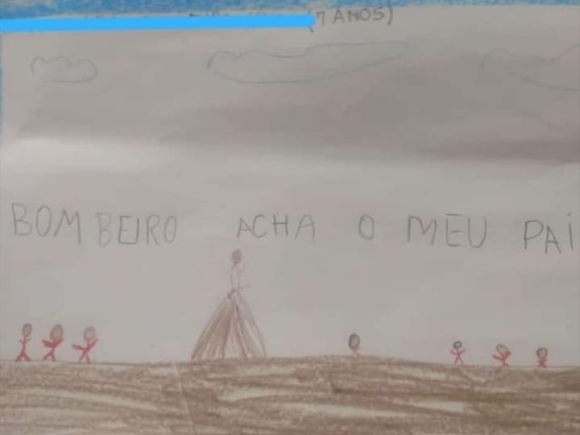 (7 ANOS)
BOMBEIRO ACHA O MEU PAI